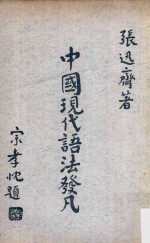 張迅齊著
中國現代語法發凡
宗孝忱題